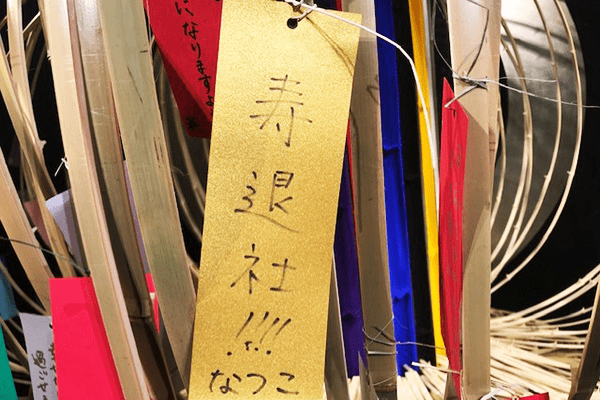 寿退社!!!!
なつこ
になりますよ